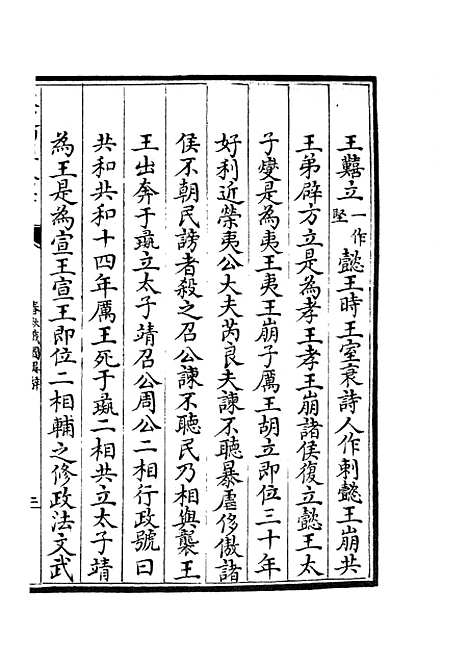 王囏立一作堅懿王時王室衰詩人作刺懿王崩共
王弟辟方立是為孝王孝王崩諸侯復立懿王太
子燮是為夷王夷王崩子厲王胡立即位三十年
好利近榮夷公大夫芮良夫諫不聽暴虐侈傲諸
侯不朝民謗者殺之召公諫不聽民乃相與襲王
王出奔于彘立太子靖召公周公二相行政號曰
共和共和十四年厲王死于彘二相共立太子靖
為王是為宣王宣王即位二相輔之修政法文武
春秋戰國異辭
三